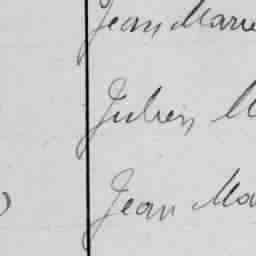 Jean Marie
Julien M
Jean Ma